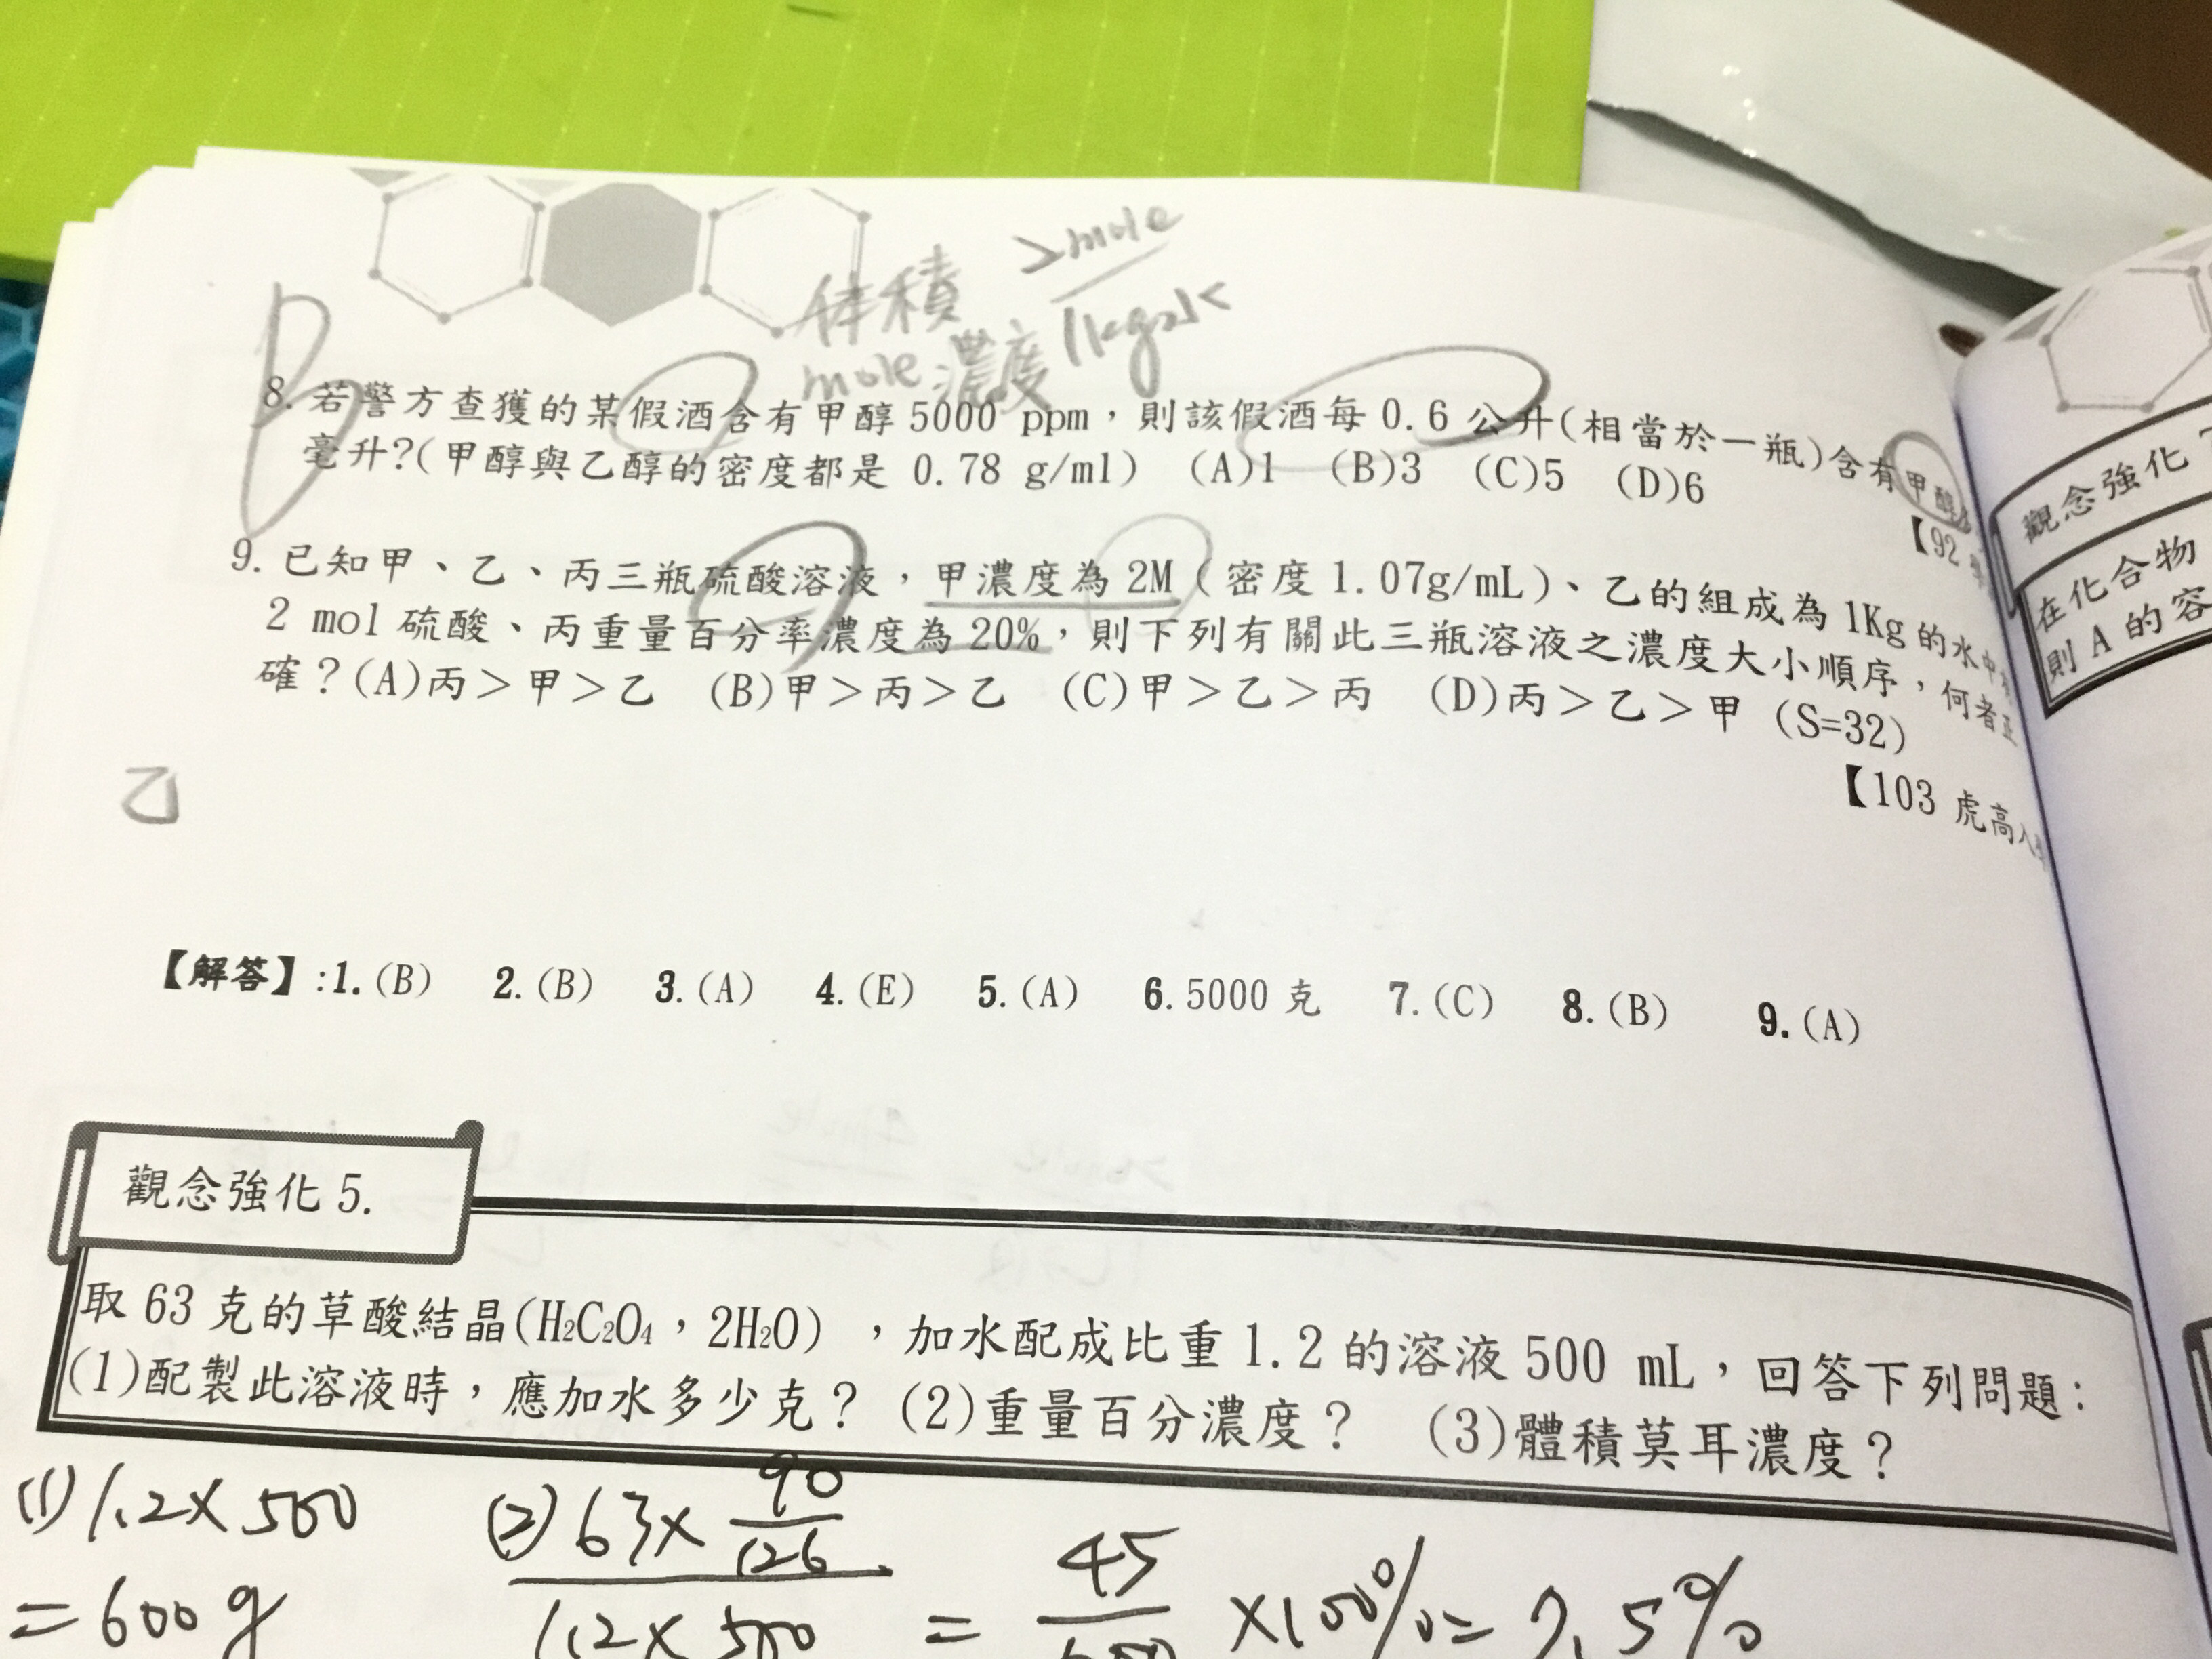 体積 2mole
mole濃度 1kg水
B
8. 若警方查獲的某假酒含有甲醇 5000 ppm，則該假酒每 0.6 公升(相當於一瓶)含有甲醇
毫升?(甲醇與乙醇的密度都是 0.78 g/ml) (A)1 (B)3 (C)5 (D)6
【92
9. 已知甲、乙、丙三瓶硫酸溶液，甲濃度為 2M (密度 1.07g/mL)、乙的組成為 1Kg 的水中
2 mol 硫酸、丙重量百分率濃度為 20%，則下列有關此三瓶溶液之濃度大小順序，何者正
確？(A)丙＞甲＞乙 (B)甲＞丙＞乙 (C)甲＞乙＞丙 (D)丙＞乙＞甲 (S=32)
【103 虎高
乙
【解答】:1.(B) 2.(B) 3.(A) 4.(E) 5.(A) 6.5000 克 7.(C) 8.(B) 9.(A)
觀念強化 5.
取 63 克的草酸結晶(H₂C₂O₄，2H₂O)，加水配成比重 1.2 的溶液 500 mL，回答下列問題：
(1)配製此溶液時，應加水多少克？ (2)重量百分濃度？ (3)體積莫耳濃度？
(1) 1.2×500
=600g
(2) 63× 90/126
1.2×500
= 45/600 ×100% = 7.5%
觀念強化
在化合物
則 A 的容